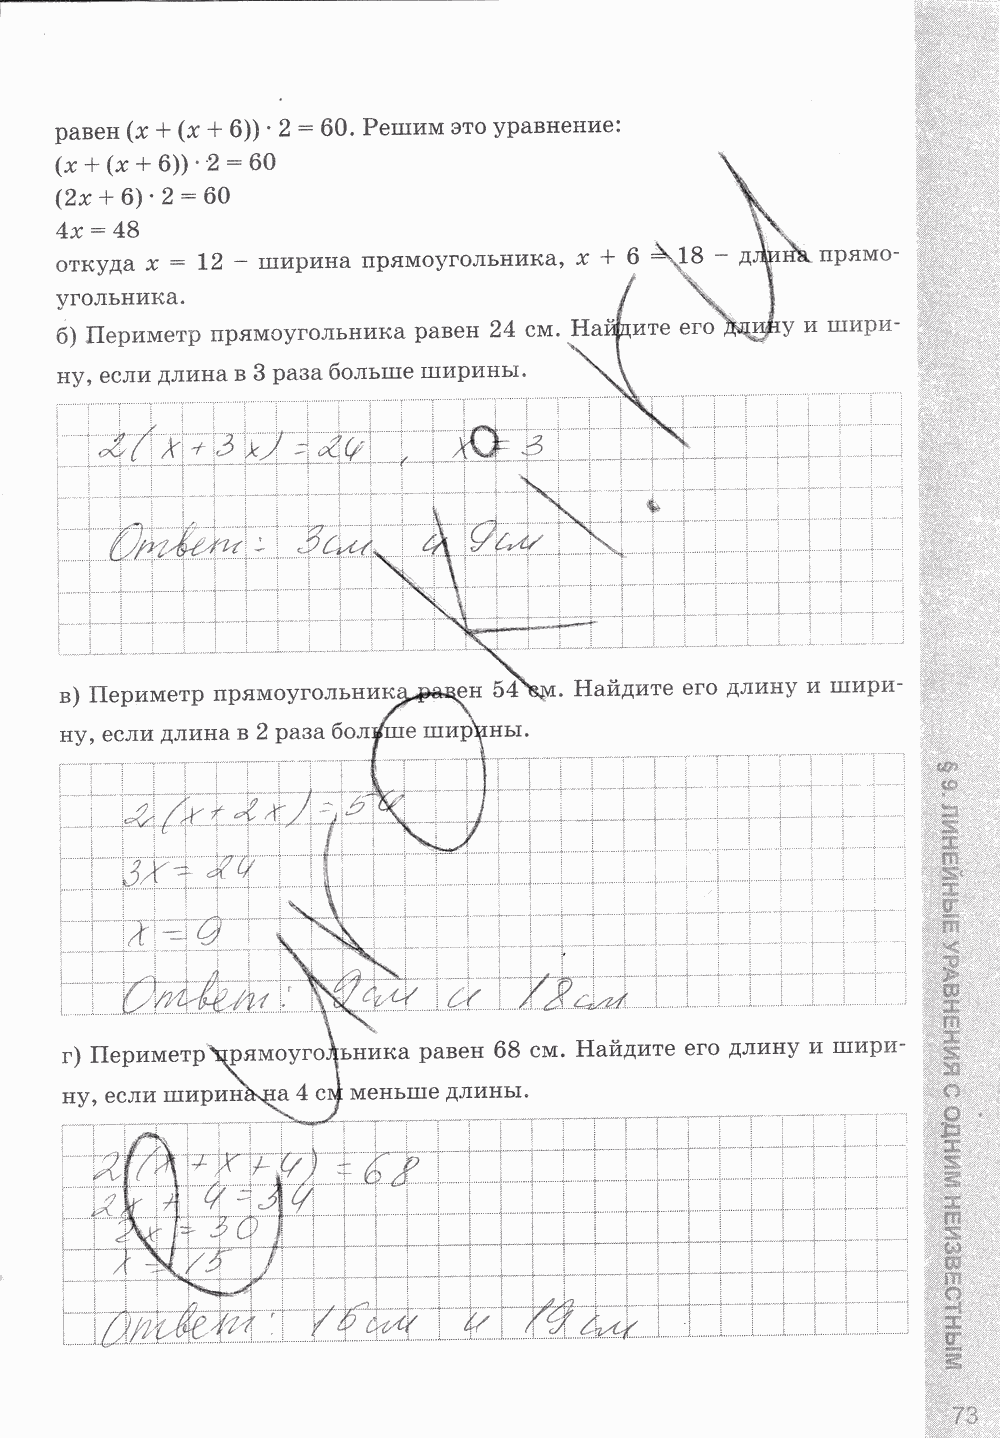 равен (x + (x + 6)) · 2 = 60. Решим это уравнение:
(x + (x + 6)) · 2 = 60
(2x + 6) · 2 = 60
4x = 48
откуда x = 12 – ширина прямоугольника, x + 6 = 18 – длина прямо-
угольника.
б) Периметр прямоугольника равен 24 см. Найдите его длину и шири-
ну, если длина в 3 раза больше ширины.
2(x + 3x) = 24 , x = 3
Ответ: 3см и 9см
в) Периметр прямоугольника равен 54 см. Найдите его длину и шири-
ну, если длина в 2 раза больше ширины.
2(x + 2x) = 54
3x = 24
x = 9
Ответ: 9см и 18см
г) Периметр прямоугольника равен 68 см. Найдите его длину и шири-
ну, если ширина на 4 см меньше длины.
2(x + x + 4) = 68
2x + 4 = 34
2x = 30
x = 15
Ответ: 15см и 19см
§ 9. ЛИНЕЙНЫЕ УРАВНЕНИЯ С ОДНИМ НЕИЗВЕСТНЫМ
73